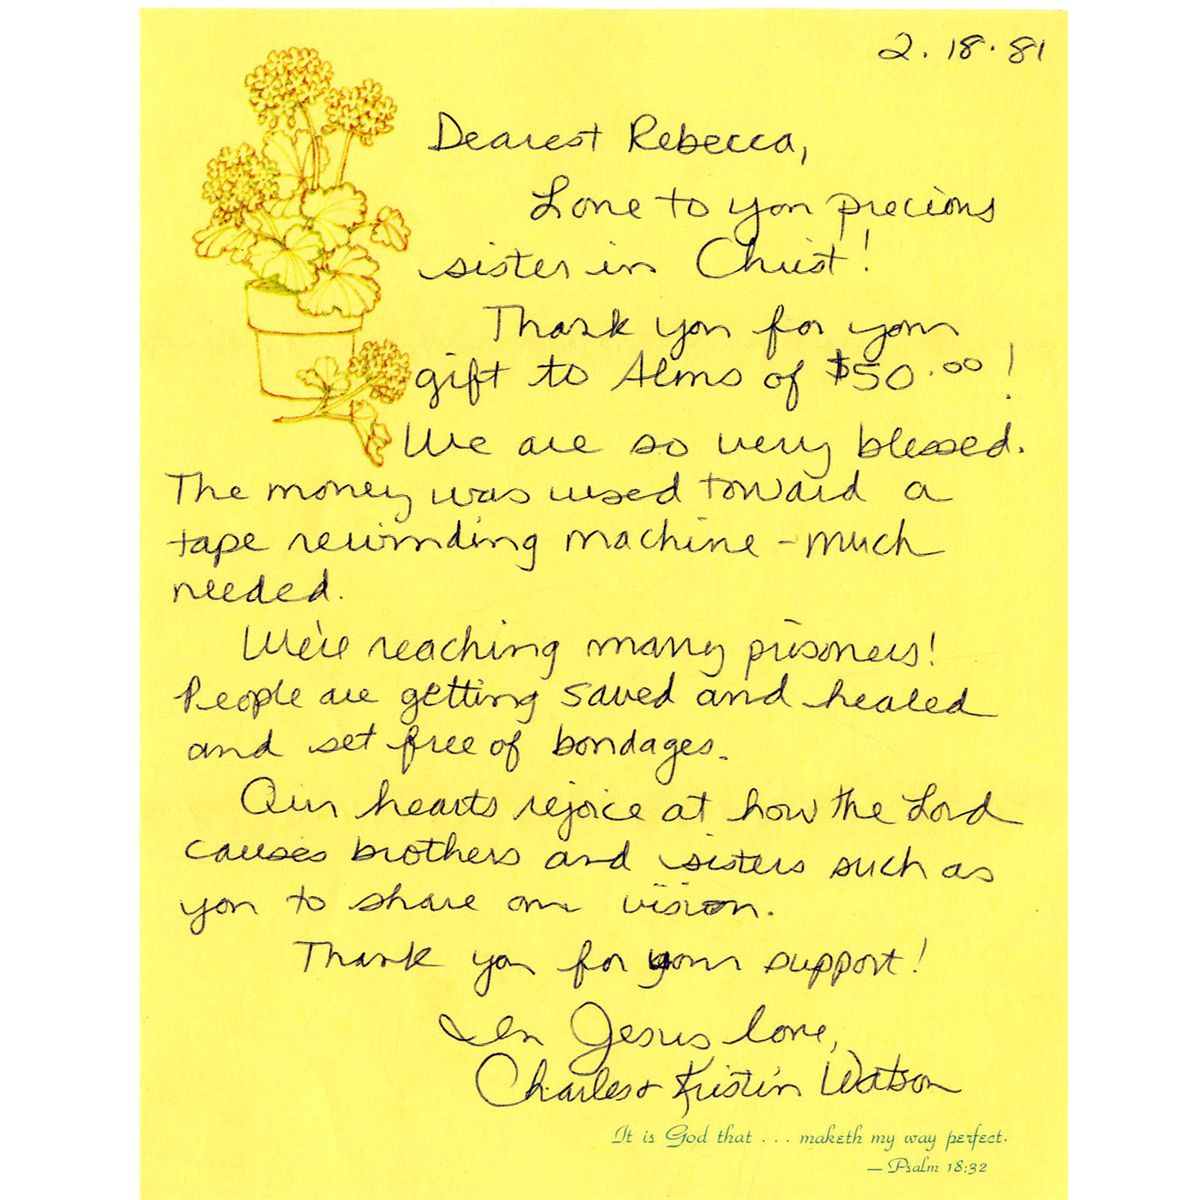 2.18.81
Dearest Rebecca,
Love to you precious
sister in Christ!
Thank you for your
gift to Alms of $50.00!
We are so very blessed.
The money was used toward a
tape rewinding machine - much
needed.
We're reaching many prisoners!
People are getting saved and healed
and set free of bondages.
Our hearts rejoice at how the Lord
causes brothers and sisters such as
you to share our vision.
Thank you for your support!
In Jesus love,
Charles & Kristin Watson
It is God that . . . maketh my way perfect.
— Psalm 18:32